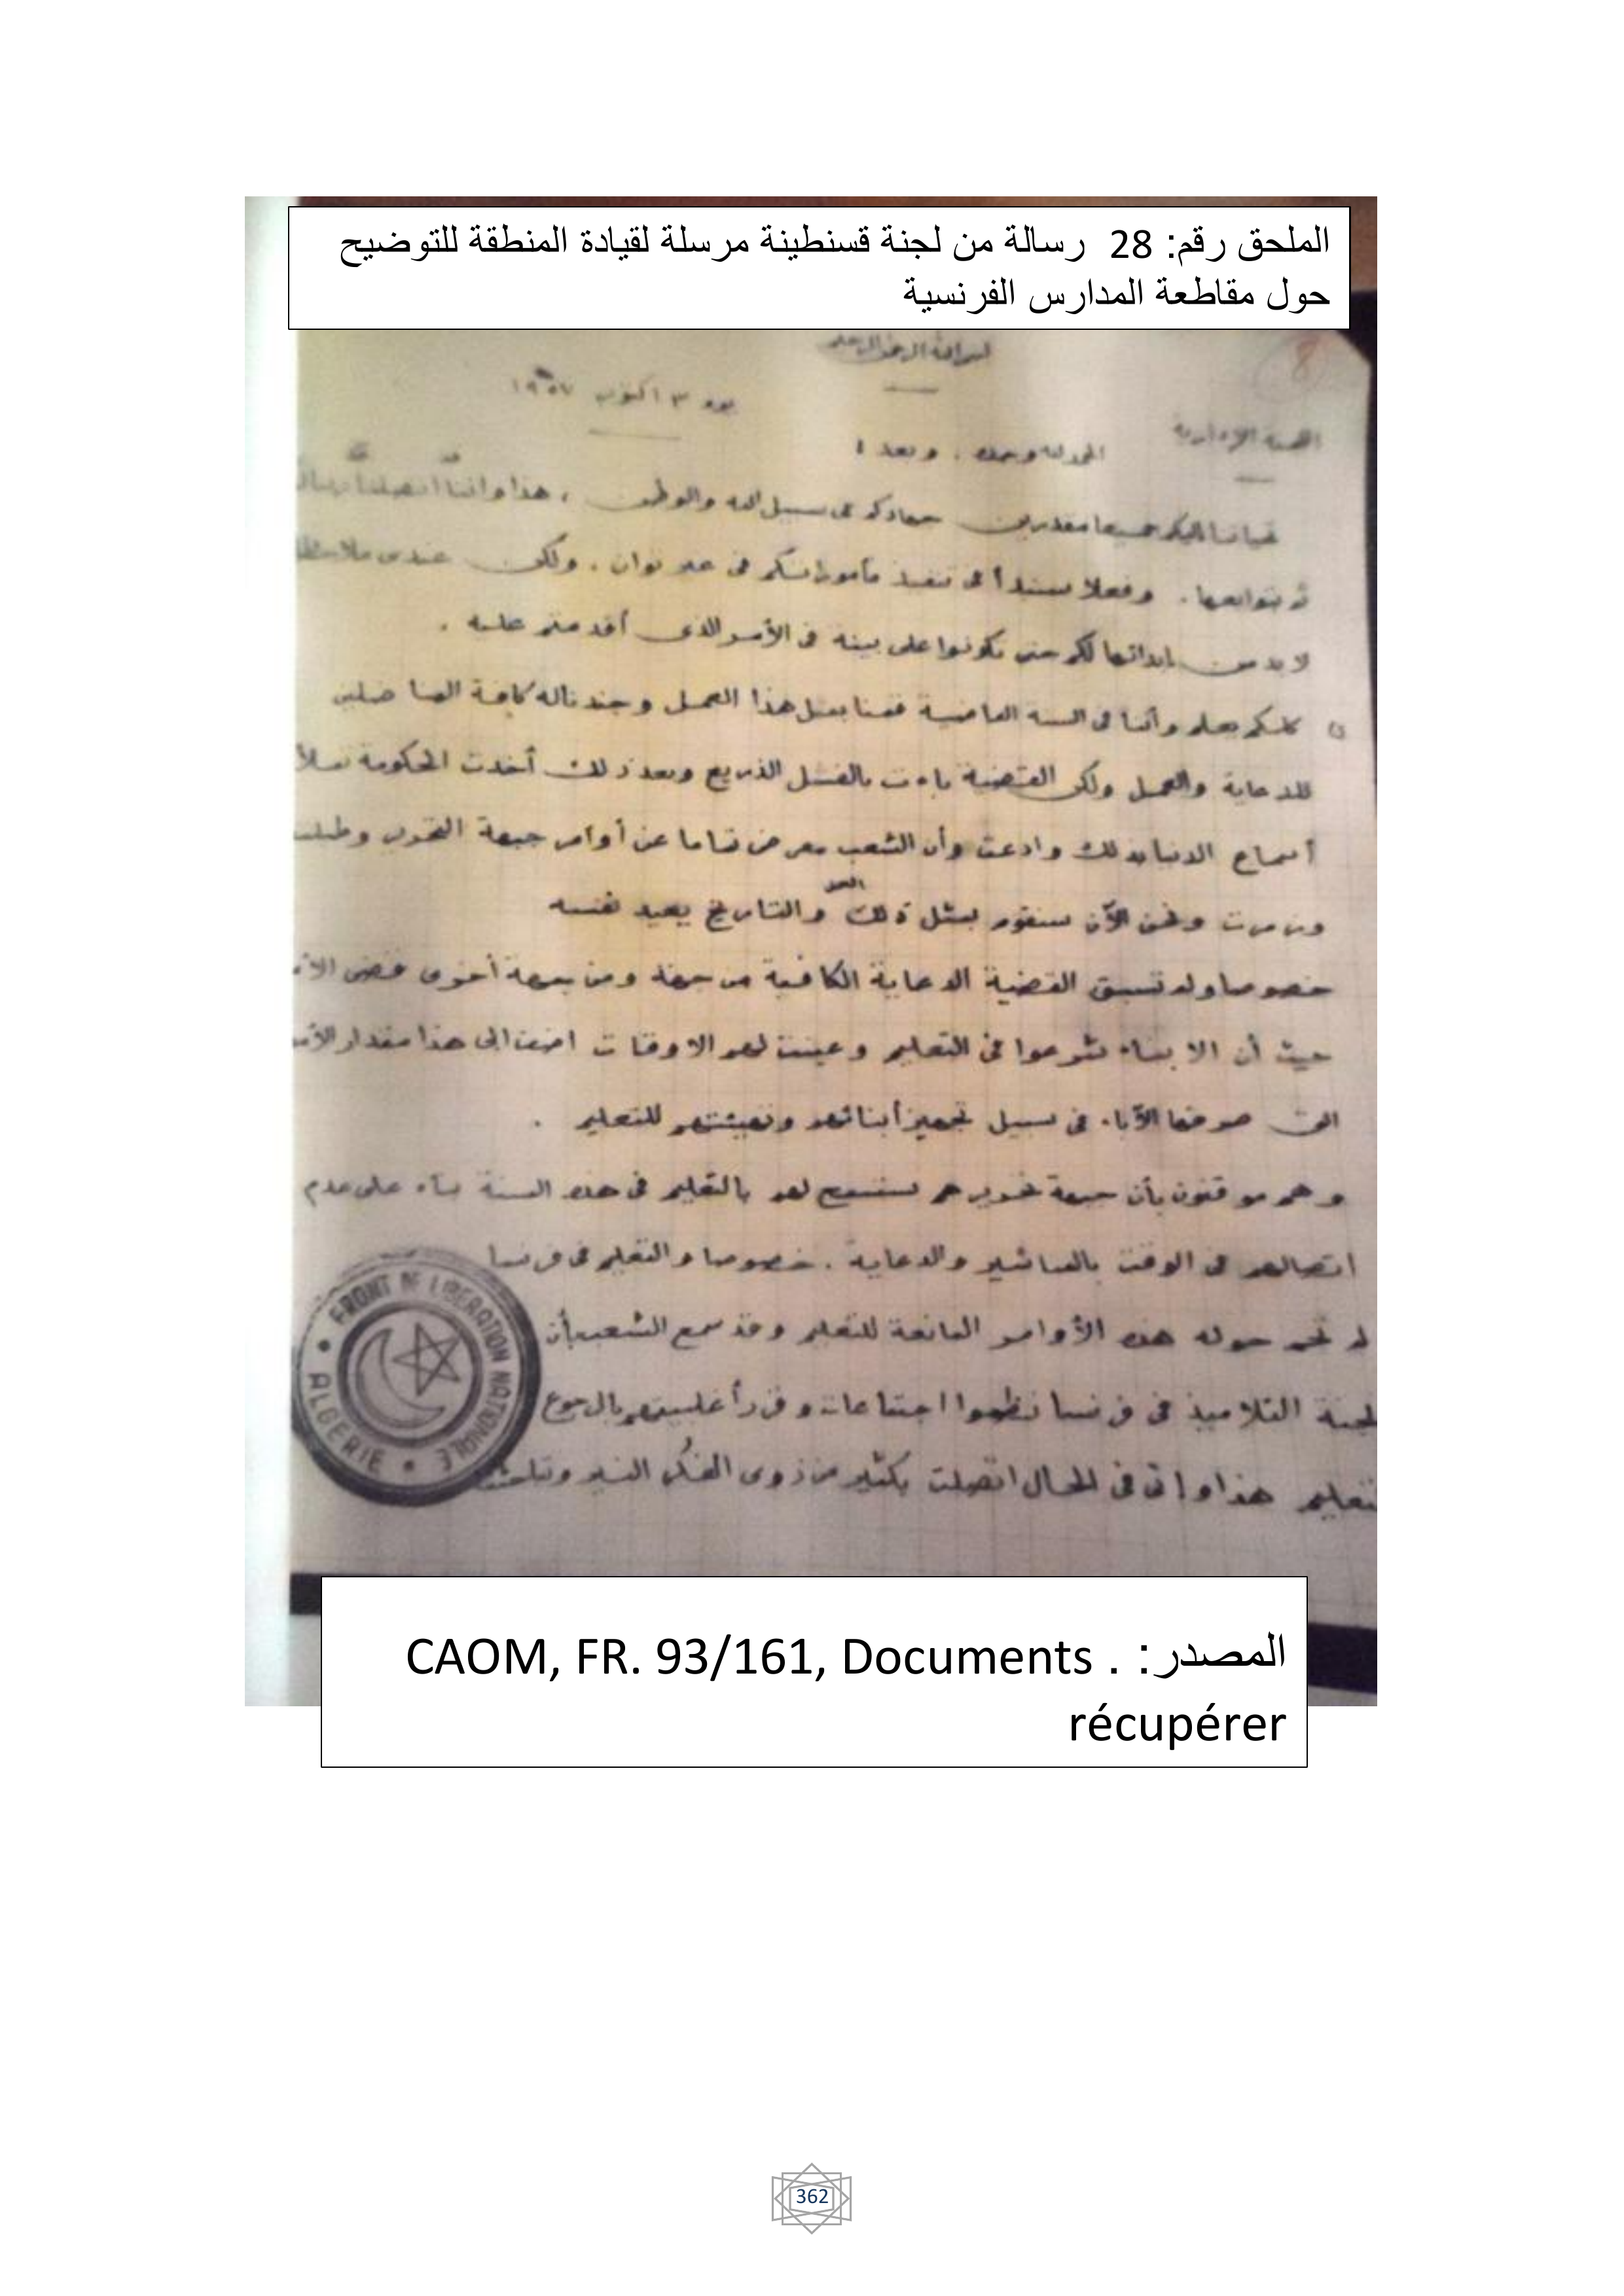 الملحق رقم: 28 رسالة من لجنة قسنطينة مرسلة لقيادة المنطقة للتوضيح
حول مقاطعة المدارس الفرنسية
8
بسم الله الرحمن الرحيم
يوم ٣ اكتوبر ١٩٥٧
اللجنة الإدارية
الحمد لله وحده . وبعد :
جميعا مقدرين جهادكم في سبيل الله والوطن ، هذا واننا
وفعلا سنبدأ في تنفيذ مأموراتكم في غير توان . ولكن عندي
لا بد من ابدائها لكم حتى تكونوا على بينة في الأمر الذي أقدمتم عليه .
وأننا في السنة الماضية قمنا بمثل هذا العمل وجند ناله كافة المناضلين
للدعاية والعمل ولكن القضية باءت بالفشل الذريع وبعد ذلك أخذت الحكومة تملأ
أسماع الدنيا بذلك وادعت وأن الشعب معرض تماما عن أوامر جبهة التحرير وطبلت
وزمرت ونحن الآن سنقوم بمثل ذلك العمل والتاريخ يعيد نفسه
خصوصا ولم تسبق القضية الدعاية الكافية من جهة ومن جهة أخرى
حيث أن الابناء شرعوا في التعليم وعينت لهم الاوقات اضف الى هذا مقدار
التي صرفها الآباء في سبيل تجهيز أبنائهم وتهيئتهم للتعليم .
وهم موقنون بأن جبهة تحريرهم ستسمح لهم بالتعليم في هذه السنة بناء على عدم
اتصالهم في الوقت بالمناشير والدعاية . خصوصا والتعليم في فرنسا
لم تحم حوله هذه الأوامر المانعة للتعليم وقد سمع الشعب بأن
لجنة التلاميذ في فرنسا نظموا اجتماعات وقرر أغلبيتهم بالرجوع
للتعليم هذا واني في الحال اتصلت بكثير من ذوي الفكر النير
FRONT DE LIBERATION NATIONALE
ALGERIE
المصدر: . CAOM, FR. 93/161, Documents
récupérer
362